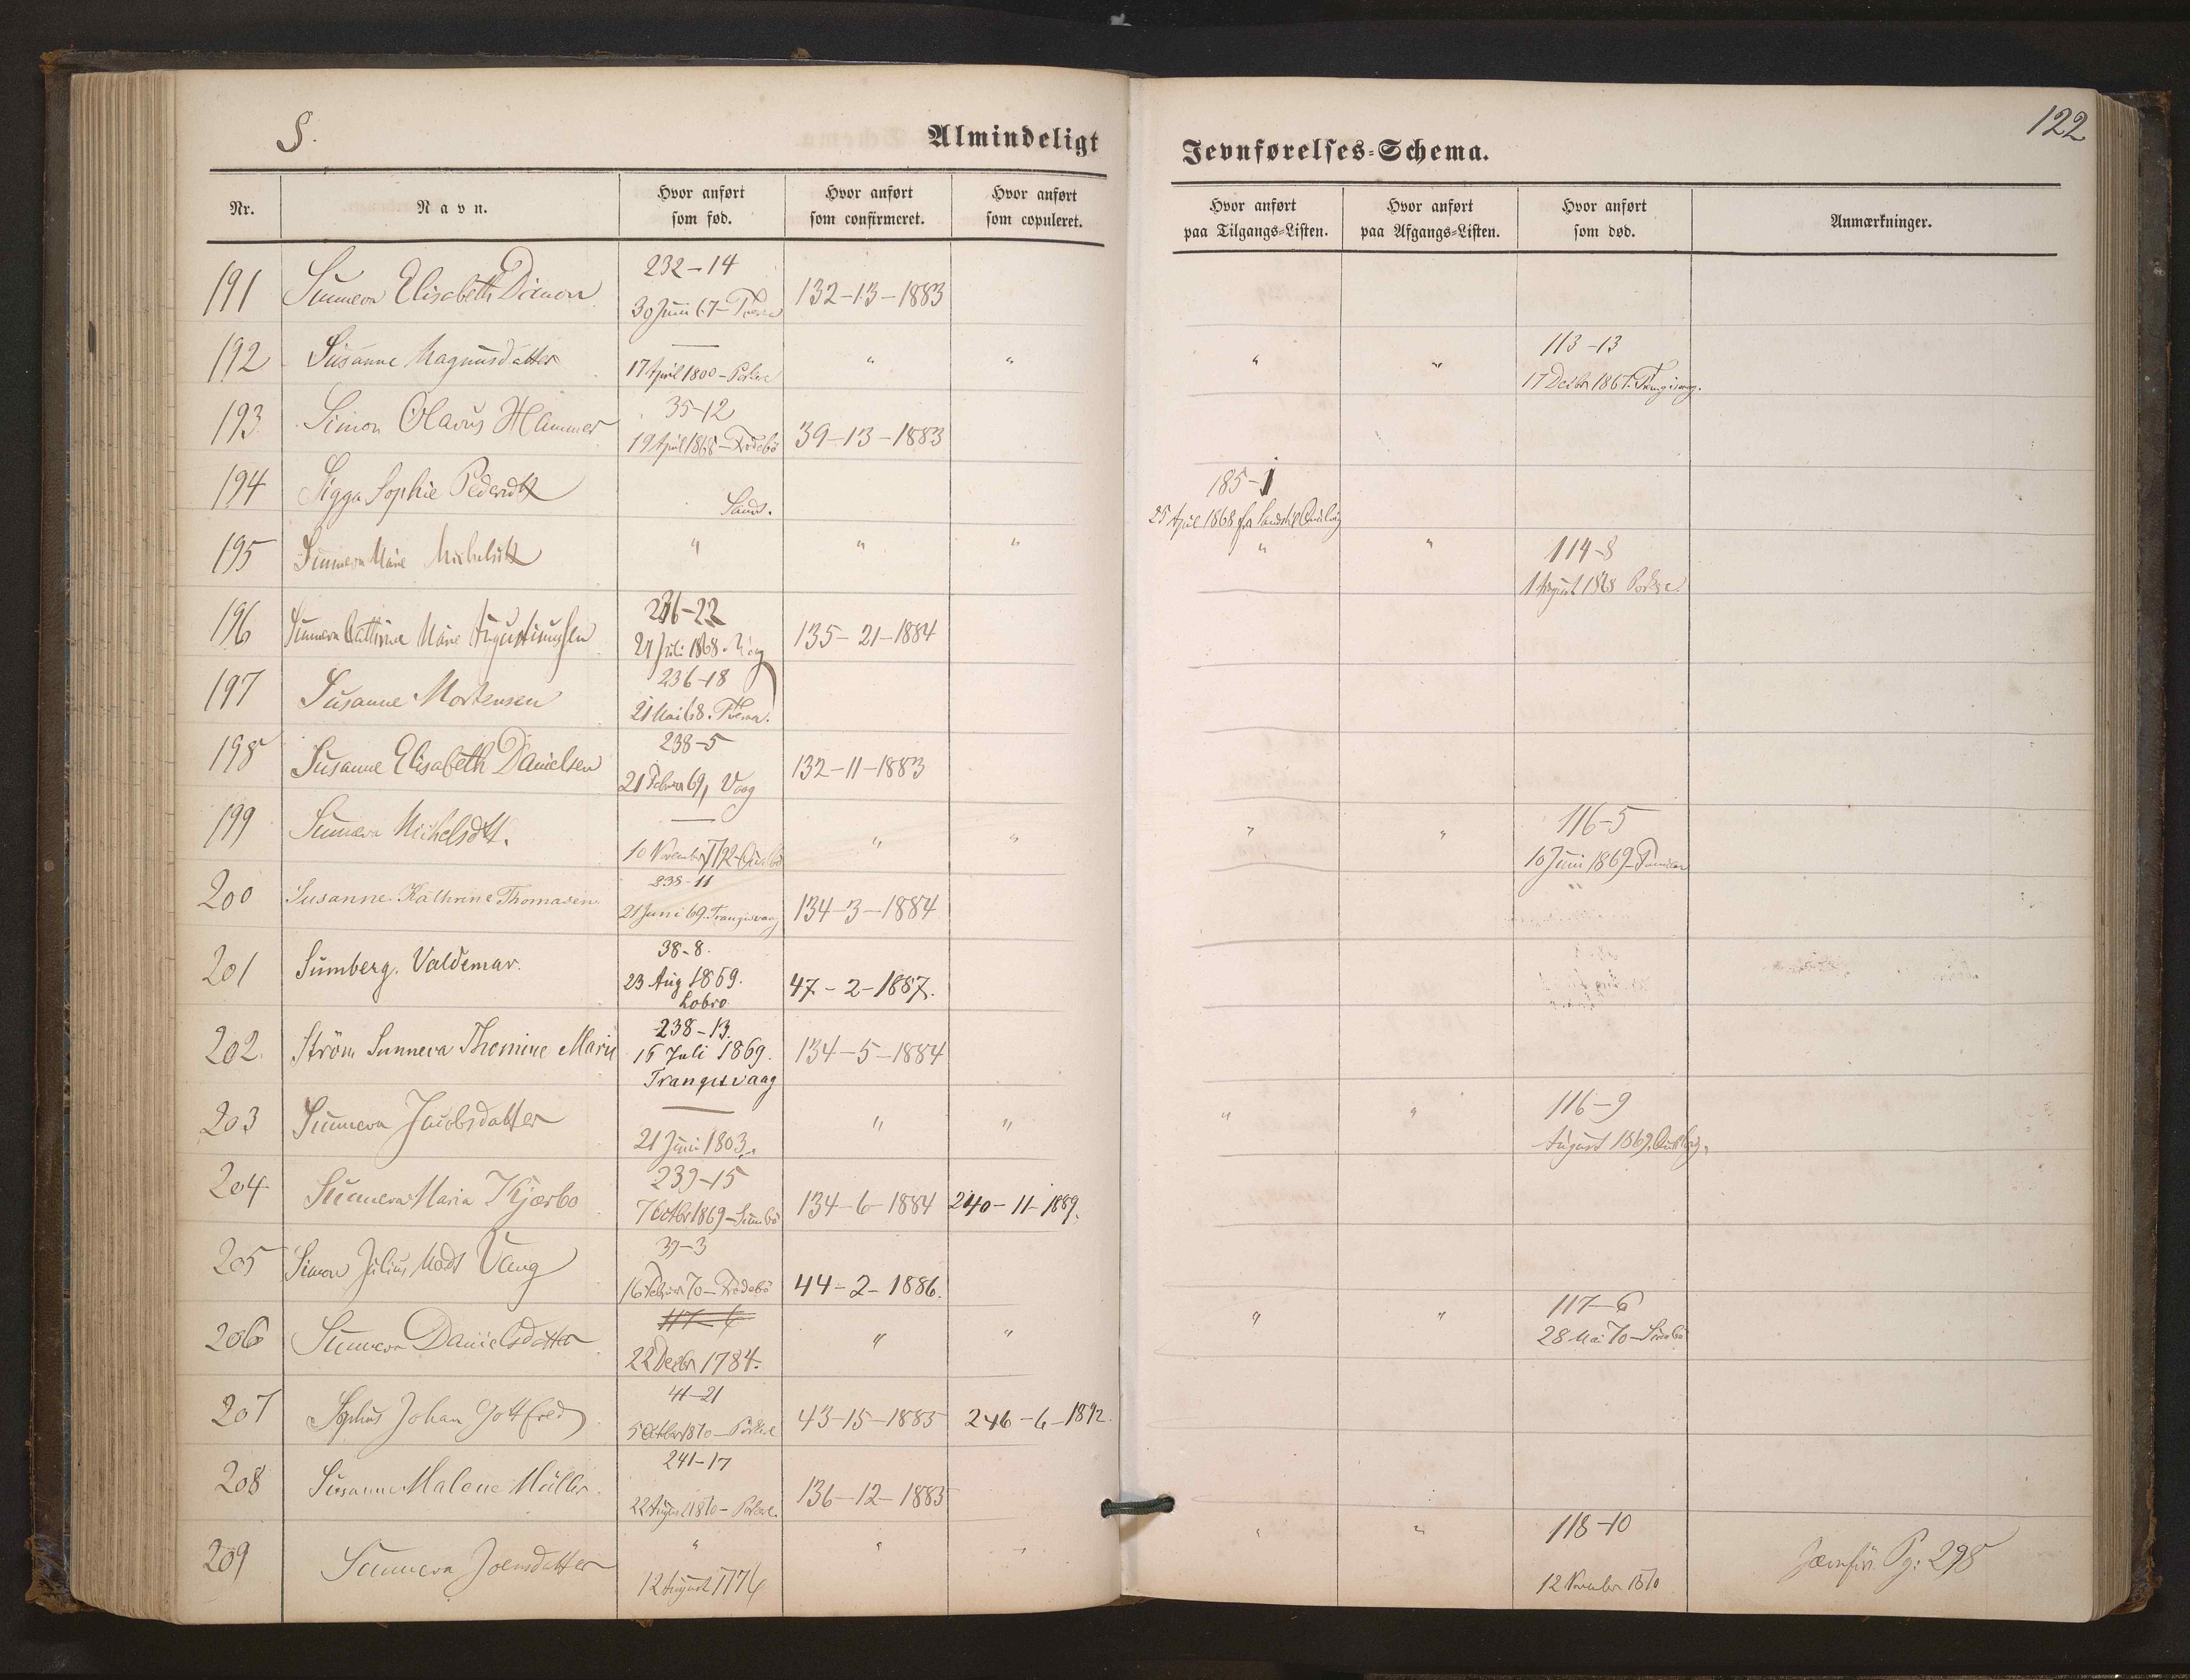 S.
Almindeligt
Jevnførelses-Schema.
122
Nr.
Navn.
Hvor anført
som fød.
Hvor anført
som confirmeret.
Hvor anført
som copuleret.
Hvor anført
paa Tilgangs-Listen.
Hvor anført
paa Afgangs-Listen.
Hvor anført
som død.
Anmærkninger.
191 Sunneva Elisabeth Dimon 232-14
30 Juni 67- 132-13-1883
192 Susanne Magnusdatter —
17 April 1800 - Porkere " " " " 113-13
17 Decbr 1867. Trangisvaag.
193 Simon Olavus Hammer 35-12
19 April 1868 - Frodebö 39-13-1883
194 Sigga Sophie Pedersdtt Sand. 185-1
25 April 1868 fra Sand til
195 Sunneva Marie Michelsdtt " " " " " 114-8
1 August 1868 Porkere
196 Sunneva Cathrine Marie Augustinussen 236-22
21 Juli 1868. Vaag 135-21-1884
197 Susanne Mortensen 236-18
21 Mai 68.
198 Susanne Elisabeth Danielsen 238-5
21 Februar 69, Vaag 132-11-1883
199 Sunneva Michelsdtt. —
10 November 1792 " " " " 116-5
10 Juni 1869
200 Susanne Kathrine Thomasen 238-11
21 Juni 69. Trangisvaag 134-3-1884
201 Sumberg. Valdemar. 38-8.
23 Aug 1869.
Lobro. 47-2-1887.
202. Ström Sunneva Thomine Marie 238-13.
15 Juli 1869.
Trangisvaag 134-5-1884
203 Sunneva Jacobsdatter —
21 Juni 1803. " " " " 116-9
August 1869.
204 Sunneva Maria Kjærbo 239-15
7 Octbr 1869 - Sumbö 134-6-1884 240-11-1889.
205 Simon Julius Mads Vang 39-3
16 Februar 70 - Frodebö 44-2-1886.
206 Sunneva Danielsdatter 117-6
22 Decbr 1784. " " " " 117-6
28 Mai 70 - Sumbö
207 Sophus Johan Gottfred 41-21
5 Octbr 1870 - Porkere 43-15-1885 246-6-1892.
208 Susanne Malene Müller. 241-17
22 August 1870 - Porkere. 136-12-1885
209 Sunneva Joensdatter "
12 August 1776 " " " " 118-10
12 November 1870 Jævnfør Pg: 298